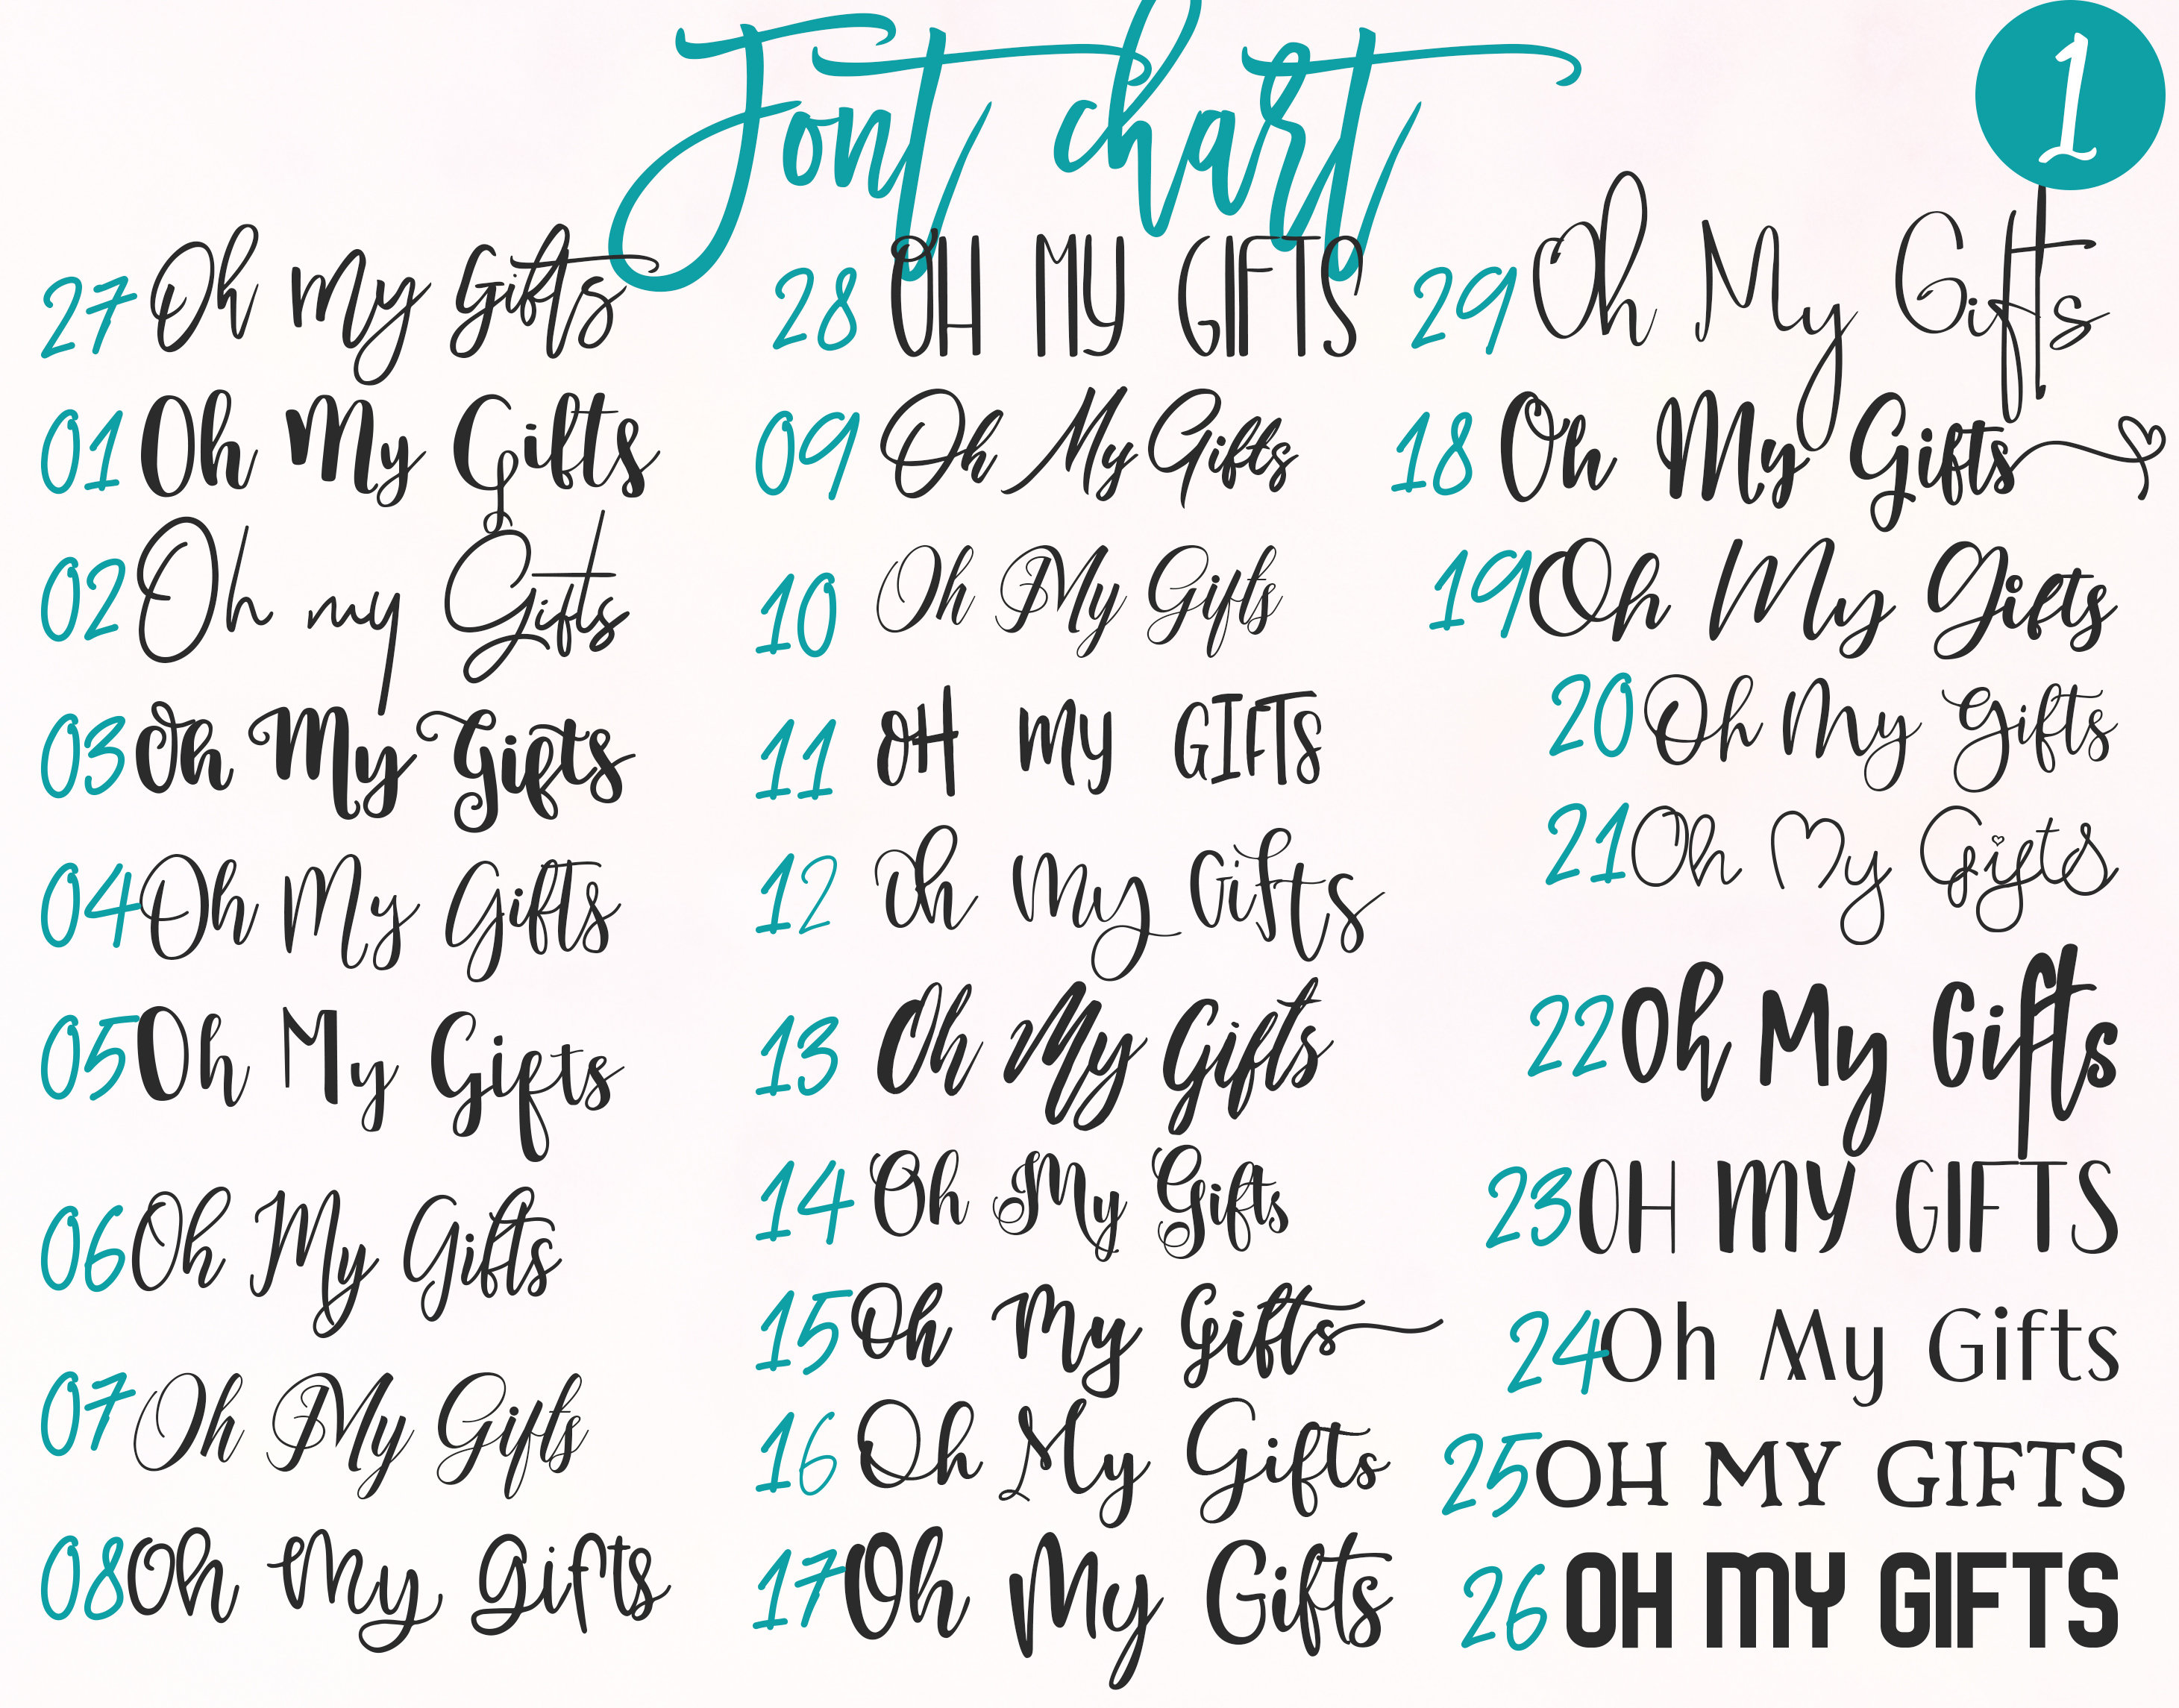 Font chart
1
27 Oh My Gifts
28 OH MY GIFTS
29 Oh My Gifts
01 Oh My Gifts
09 Oh My Gifts
18 Oh My Gifts
02 Oh my Gifts
10 Oh My Gifts
19 Oh My Gifts
03 Oh My Gifts
11 OH MY GIFTS
20 Oh My Gifts
04 Oh My Gifts
12 Oh My Gifts
21 Oh My Gifts
05 Oh My Gifts
13 Oh My Gifts
22 Oh My Gifts
06 Oh My Gifts
14 Oh My Gifts
23 OH MY GIFTS
07 Oh My Gifts
15 Oh My Gifts
24 Oh My Gifts
16 Oh My Gifts
25 OH MY GIFTS
08 Oh My Gifts
17 Oh My Gifts
26 OH MY GIFTS